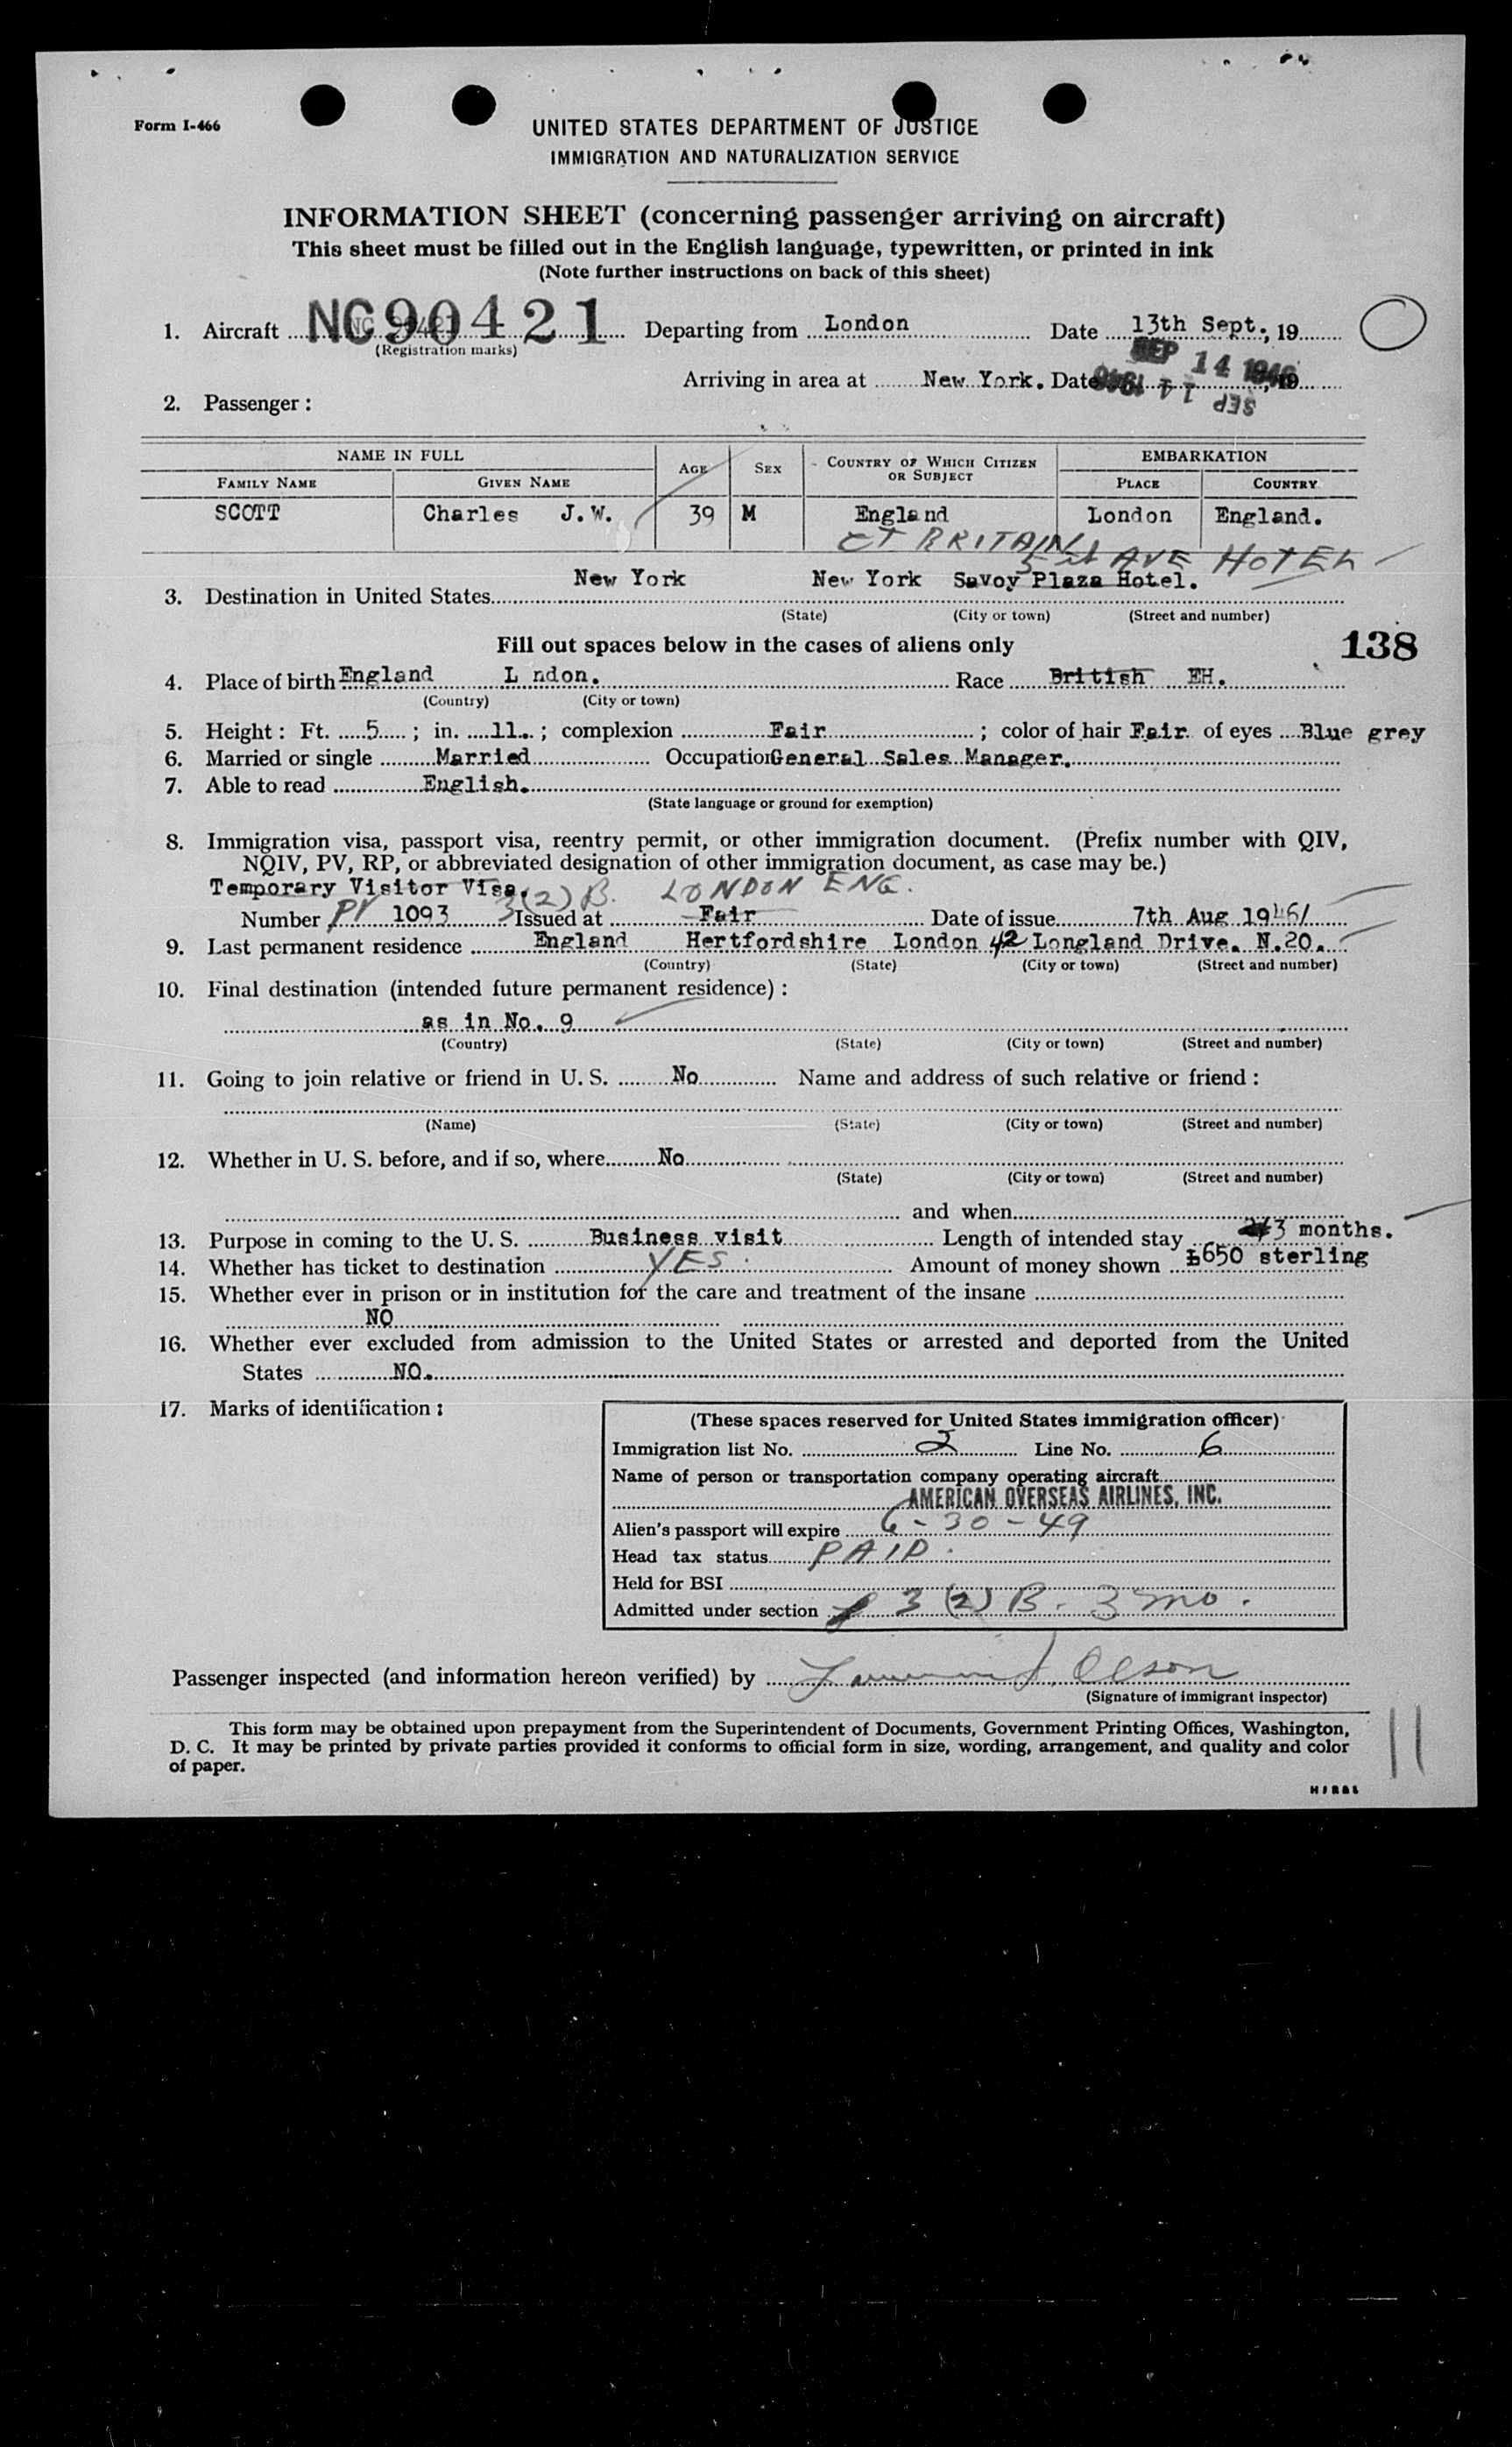 Form I-466
UNITED STATES DEPARTMENT OF JUSTICE
IMMIGRATION AND NATURALIZATION SERVICE
INFORMATION SHEET (concerning passenger arriving on aircraft)
This sheet must be filled out in the English language, typewritten, or printed in ink
(Note further instructions on back of this sheet)
1. Aircraft NC90421 Departing from London Date 13th Sept., 19
(Registration marks)
SEP 14 1946
Arriving in area at New York. Date , 19
SEP 14 1946
2. Passenger:
NAME IN FULL AGE SEX COUNTRY OF WHICH CITIZEN OR SUBJECT EMBARKATION
FAMILY NAME GIVEN NAME PLACE COUNTRY
SCOTT Charles J.W. 39 M England London England.
GT BRITAIN 5th AVE HOTEL
3. Destination in United States New York New York Savoy Plaza Hotel.
(State) (City or town) (Street and number)
Fill out spaces below in the cases of aliens only 138
4. Place of birth England L ndon. Race British EH.
(Country) (City or town)
5. Height: Ft. 5 ; in. 11. ; complexion Fair ; color of hair Fair of eyes Blue grey
6. Married or single Married Occupation General Sales Manager.
7. Able to read English.
(State language or ground for exemption)
8. Immigration visa, passport visa, reentry permit, or other immigration document. (Prefix number with QIV,
NQIV, PV, RP, or abbreviated designation of other immigration document, as case may be.)
Temporary Visitor Visa. 3(2)B. LONDON ENG.
Number PV 1093 Issued at Fair Date of issue 7th Aug 1946
9. Last permanent residence England Hertfordshire London 42 Longland Drive. N.20.
(Country) (State) (City or town) (Street and number)
10. Final destination (intended future permanent residence):
as in No. 9
(Country) (State) (City or town) (Street and number)
11. Going to join relative or friend in U. S. No Name and address of such relative or friend:
(Name) (State) (City or town) (Street and number)
12. Whether in U. S. before, and if so, where No
(State) (City or town) (Street and number)
and when
13. Purpose in coming to the U. S. Business visit Length of intended stay 3 months.
14. Whether has ticket to destination YES. Amount of money shown £650 sterling
15. Whether ever in prison or in institution for the care and treatment of the insane
NO
16. Whether ever excluded from admission to the United States or arrested and deported from the United
States NO.
17. Marks of identification:
(These spaces reserved for United States immigration officer)
Immigration list No. 2 Line No. 6
Name of person or transportation company operating aircraft
AMERICAN OVERSEAS AIRLINES, INC.
Alien's passport will expire 6-30-49
Head tax status PAID.
Held for BSI
Admitted under section 3(2)B. 3 mo.
Passenger inspected (and information hereon verified) by Olson
(Signature of immigrant inspector)
This form may be obtained upon prepayment from the Superintendent of Documents, Government Printing Offices, Washington,
D. C. It may be printed by private parties provided it conforms to official form in size, wording, arrangement, and quality and color
of paper.
11